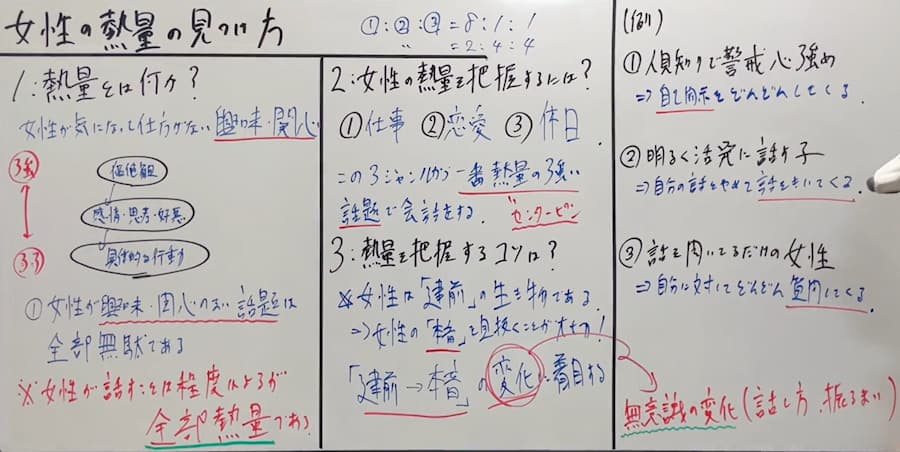 女性の熱量の見つけ方
①:②:③=8:1:1
〃 =2:4:4
1:熱量とは何か?
女性が気になって仕方がない興味・関心
強
価値観
感情・思考・好悪
弱
具体的な行動
①女性が興味・関心のない話題は
全部無駄である
※女性が話すことは程度によるが
全部熱量である
2:女性の熱量を把握するには?
①仕事 ②恋愛 ③休日
この3ジャンルから一番熱量の強い
話題で会話をする。
センターピン
3:熱量を把握するコツは?
※女性は「建前」の生き物である
⇒女性の「本音」を見抜くことが大切!
「建前→本音」の変化に着目する
(例)
①人見知りで警戒心強め
⇒自己開示をどんどんしてくる。
②明るく活発に話す子
⇒自分の話をやめて話をきいてくる。
③話を聞いてるだけの女性
⇒自分に対してどんどん質問してくる。
無意識の変化(話し方、振るまい)